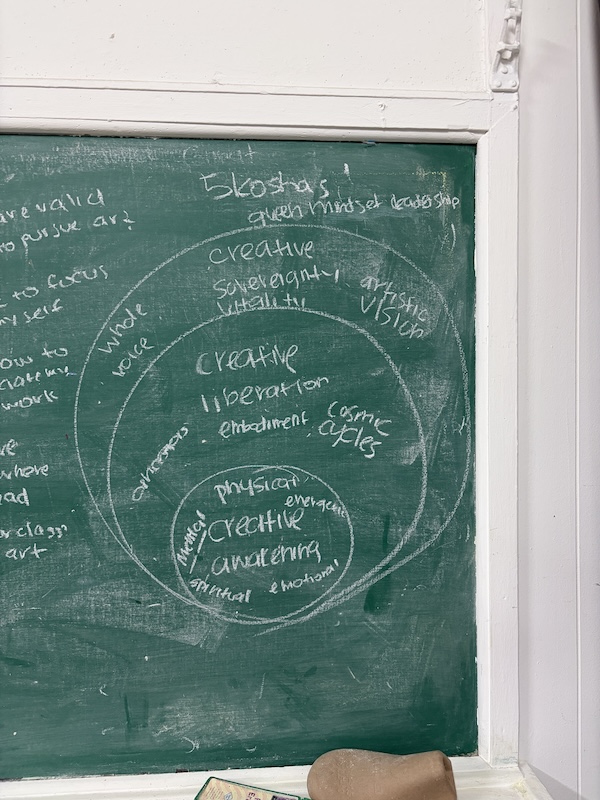 are valid
to pursue art
to focus
myself
how to
work
where
art
5 koshas
queen mindset leadership
creative
sovereignty
vitality
artistic
vision
whole
voice
creative
liberation
embodiment
cosmic
cycles
ancestors
physical
energetic
mental
creative
awakening
spiritual
emotional